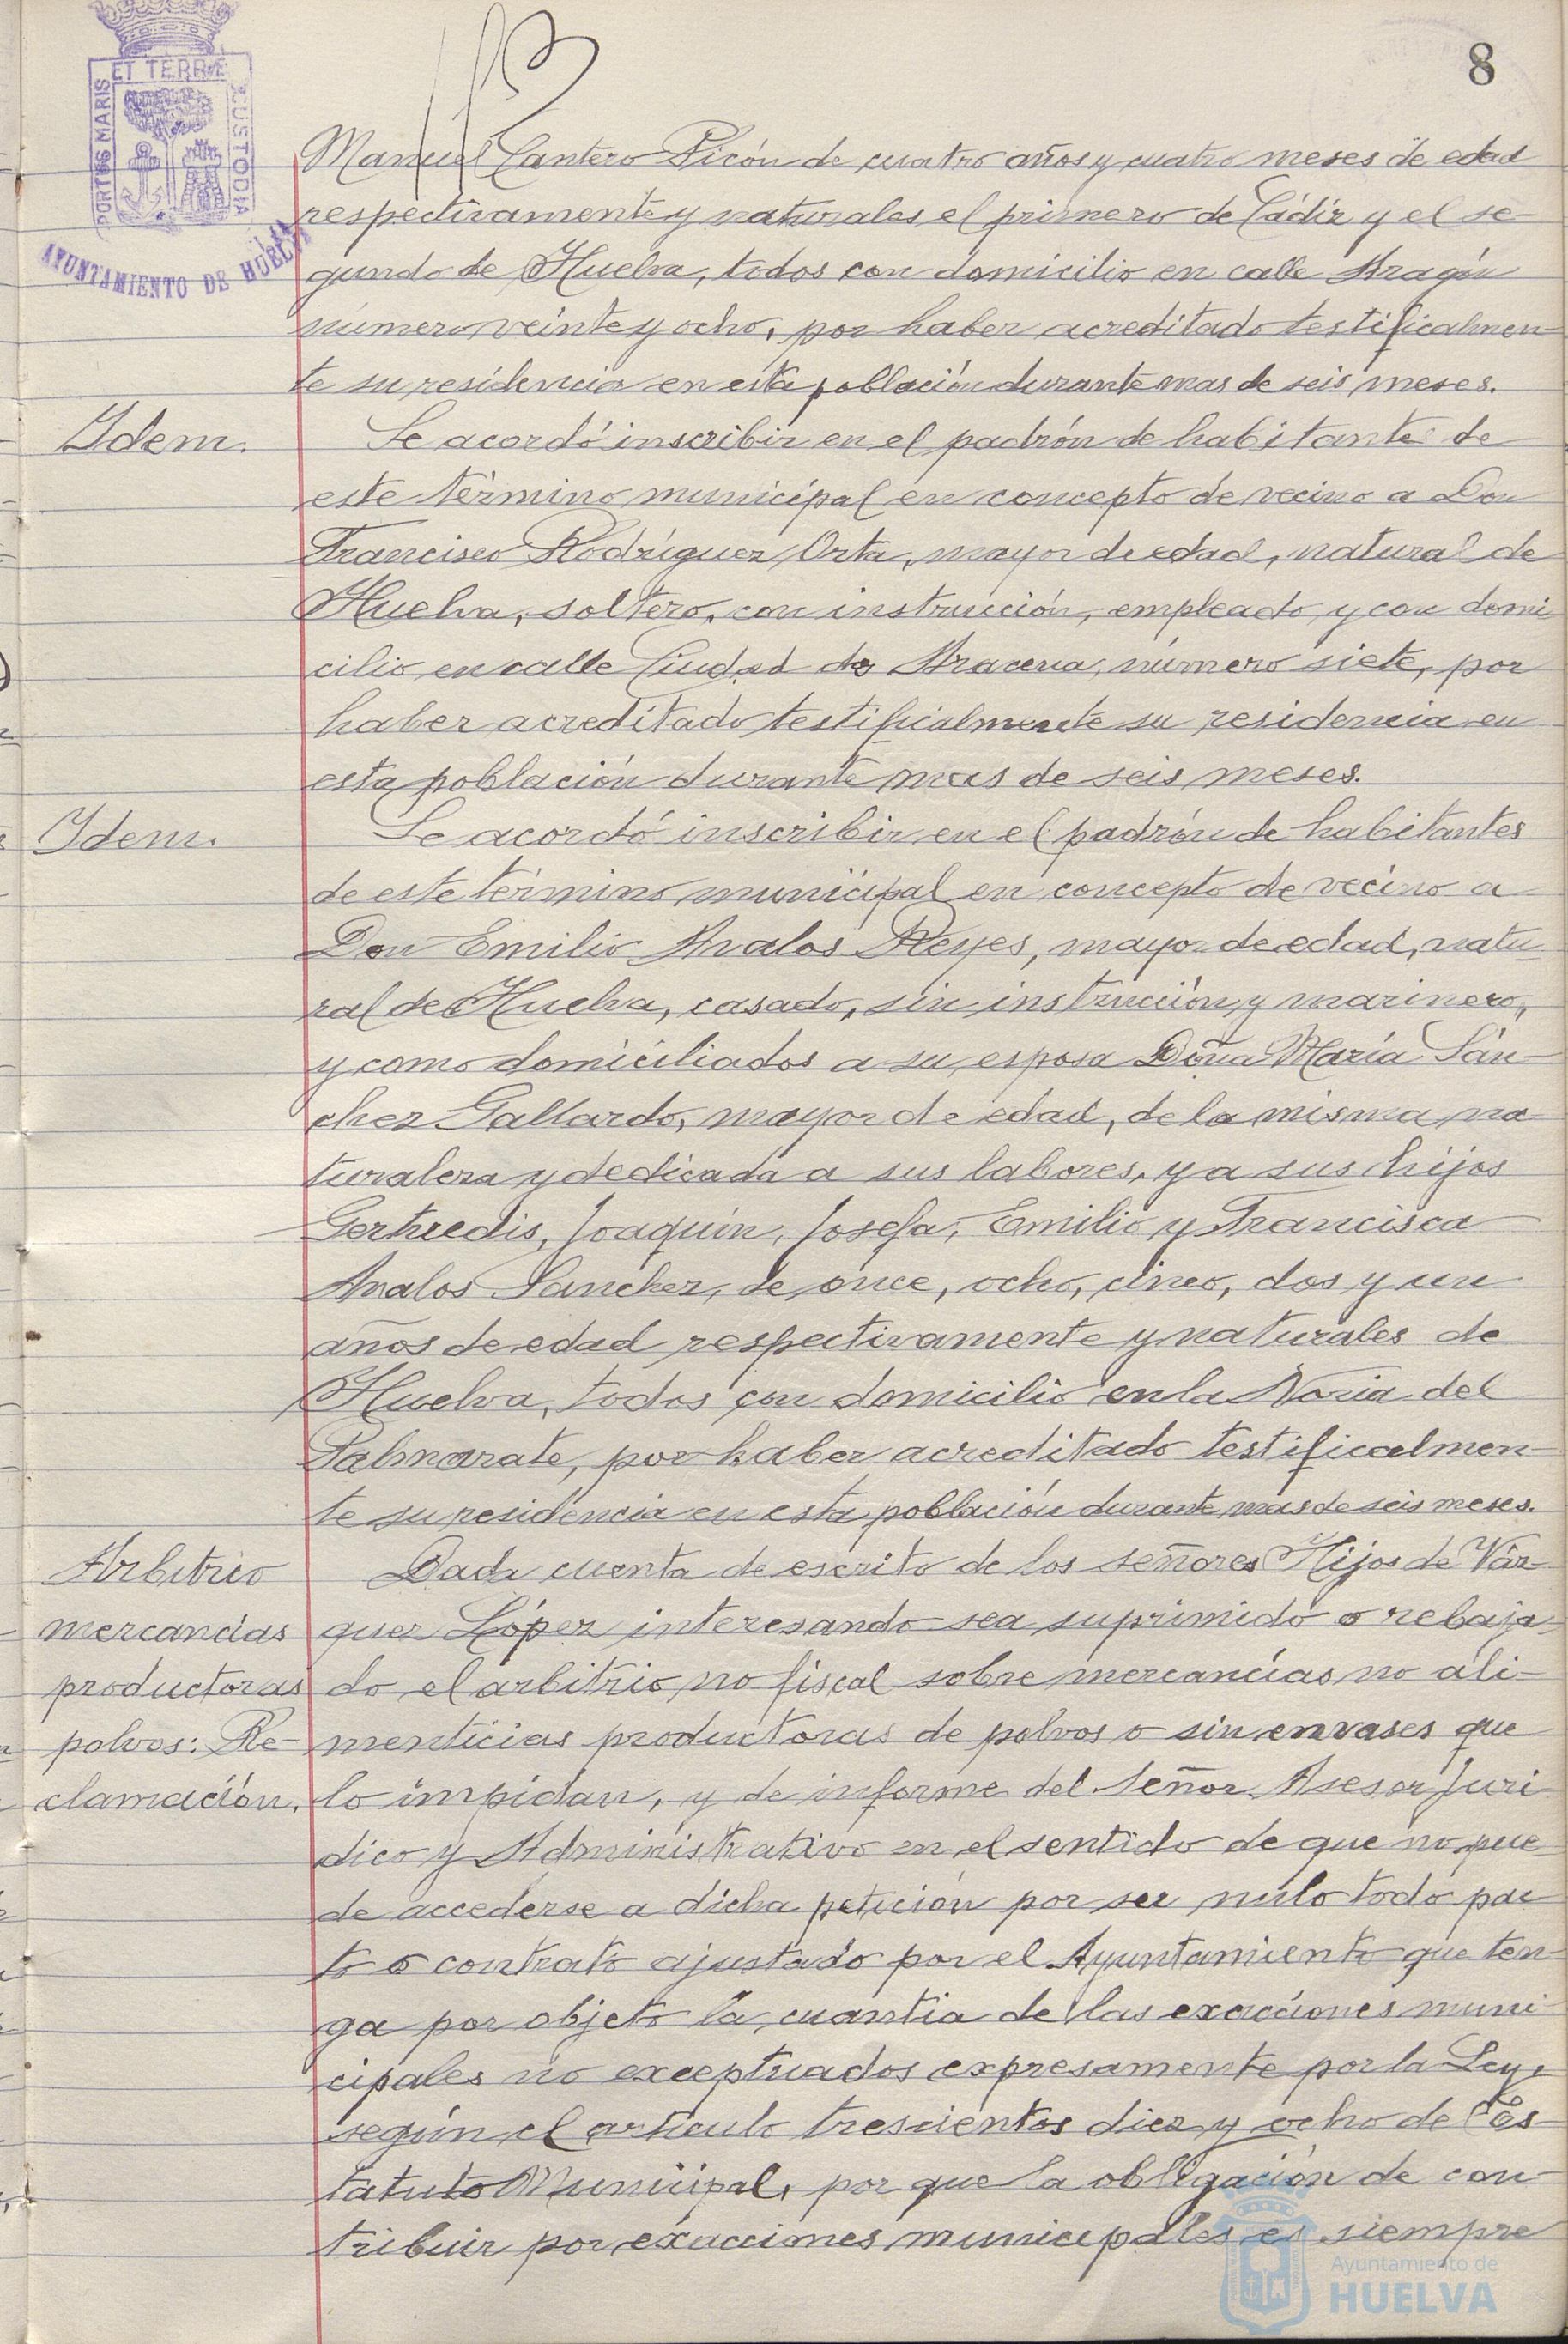 8
PORTUS MARIS
ET TERRÆ
CUSTODIA
AYUNTAMIENTO DE HUELVA
Manuel Cantero Picón de cuatro años y cuatro meses de edad
respectivamente y naturales el primero de Cádiz y el se-
gundo de Huelva, todos con domicilio en calle Aragón
número veinte y ocho, por haber acreditado testificalmen-
te su residencia en esta población durante mas de seis meses.
Idem.
Se acordó inscribir en el padrón de habitantes de
este término municipal en concepto de vecino a Don
Francisco Rodríguez Orta, mayor de edad, natural de
Huelva, soltero, con instrucción, empleado y con domi
cilio en calle Ciudad de Aracena, número siete, por
haber acreditado testificialmente su residencia en
esta población durante mas de seis meses.
Idem.
Se acordó inscribir en el padrón de habitantes
de este término municipal en concepto de vecino a
Don Emilio Avalos Reyes, mayor de edad, natu-
ral de Huelva, casado, sin instrucción y marinero,
y como domiciliados a su esposa Doña María Sán-
chez Gallardo, mayor de edad, de la misma na
turaleza y dedicada a sus labores, y a sus hijos
Gertrudis, Joaquín, Josefa, Emilio y Francisca
Avalos Sanchez, de once, ocho, cinco, dos y un
años de edad respectivamente y naturales de
Huelva, todos con domicilio en la Noria del
Palmarate, por haber acreditado testificalmen-
te su residencia en esta población durante mas de seis meses.
Arbitrio
mercancías
productoras
polvos: Re-
clamación.
Dada cuenta de escrito de los señores Hijos de Váz-
quez López interesando sea suprimido o rebaja-
do el arbitrio no fiscal sobre mercancías no ali-
menticias productoras de polvos o sin envases que
lo impidan, y de informe del Señor Asesor Juri
dico y Administrativo en el sentido de que no pue
de accederse a dicha petición por ser nulo todo pac
to o contrato ajustado por el Ayuntamiento que ten-
ga por objeto la cuantia de las exacciones muni
cipales no exceptuados expresamente por la Ley,
según el artículo trescientos diez y ocho del Es-
tatuto Municipal, por que la obligación de con-
tribuir por exacciones municipales es siempre
Ayuntamiento de
HUELVA